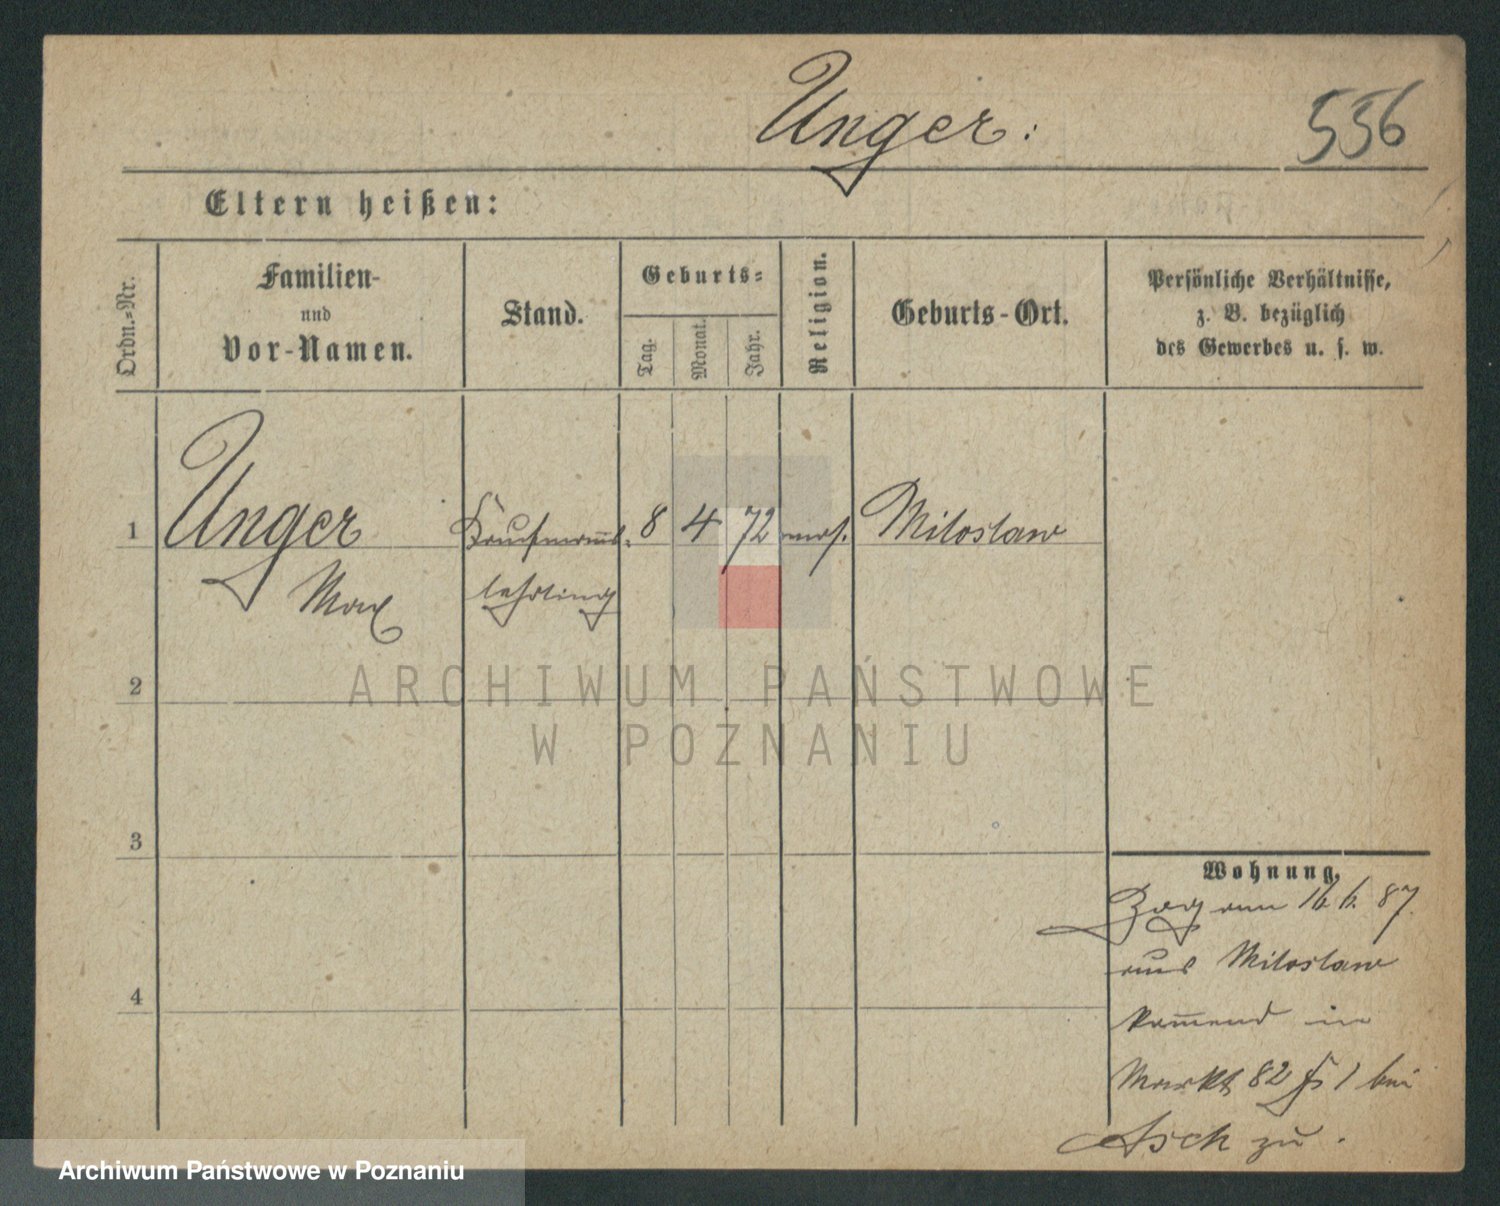 Unger:
556
Eltern heißen:
Ordn.-Nr.
Familien-
und
Vor-Namen.
Stand.
Geburts-
Tag.
Monat.
Jahr.
Religion.
Geburts-Ort.
Persönliche Verhältnisse,
z. B. bezüglich
des Gewerbes u. s. w.
1
Unger
Max
Kaufmanns-
lehrling
8
4
72
mos.
Miloslaw
2
3
4
ARCHIWUM PAŃSTWOWE
W POZNANIU
Wohnung.
Zog am 16.6. 87.
aus Miloslaw
kom̅end in
Markt 82 1 bei
Asch zu.
Archiwum Państwowe w Poznaniu